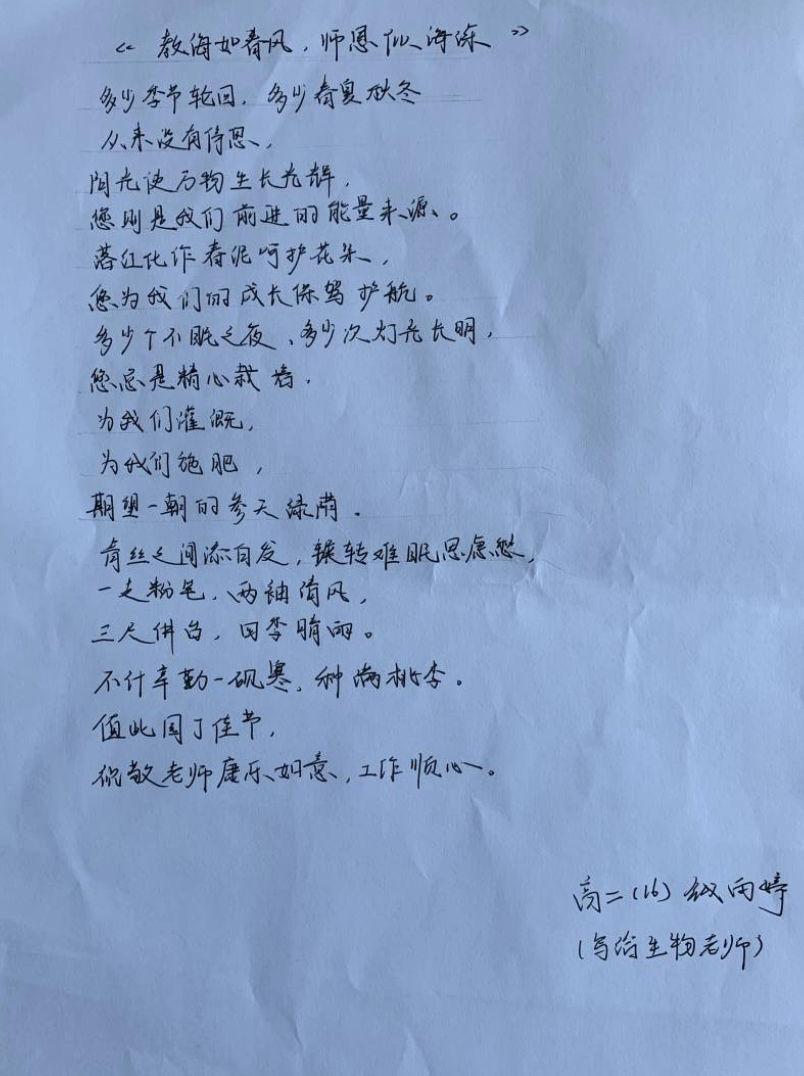 《教诲如春风，师恩似海深》
多少季节轮回，多少春夏秋冬
从来没有停息，
阳光使万物生长光辉，
您则是我们前进的能量来源。
落红化作春泥呵护花朵，
您为我们的成长保驾护航。
多少个不眠之夜、多少次灯光长明，
您总是精心栽培，
为我们灌溉，
为我们施肥，
期望一朝的参天绿荫．
青丝之间添白发，辗转难眠思虑愁，
一支粉笔，两袖清风，
三尺讲台，四季晴雨。
不计辛勤一砚寒，种满桃李。
值此园丁佳节，
祝敬老师康乐如意，工作顺心。
高二（16）雨婷
（写给生物老师）